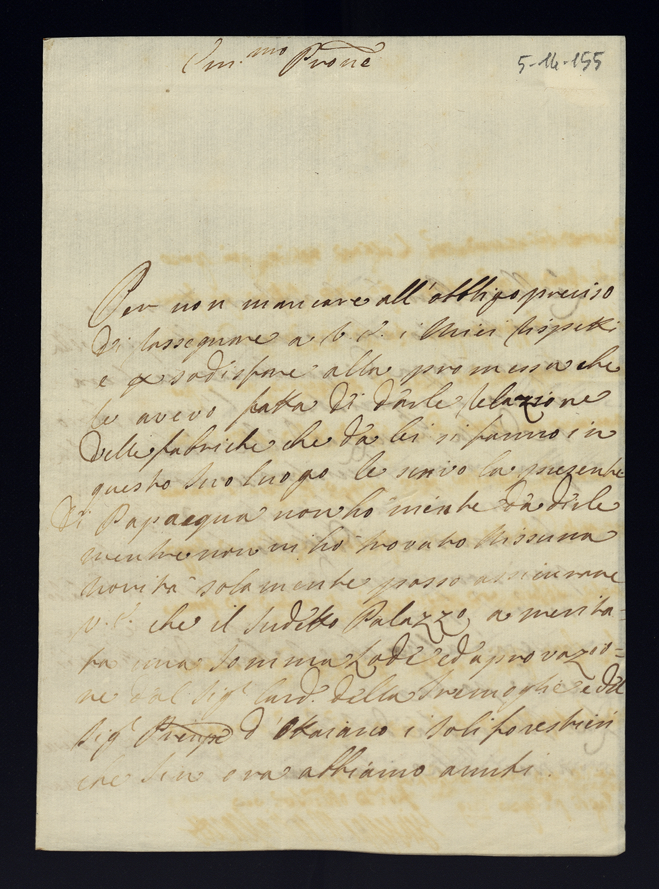 Em.mo Prone
5-14-155
Per non mancare all'obbligo preciso
di rassegnare a V. E. i Miei rispetti
e p sodisfare alla promessa che
le avevo fatta di darle relazzione
delle fabriche che da lei si fanno in
questo suo luogo le scrivo la presente
Di Papacqua non ho niente da dirle
mentre non vi ho trovato Nissuna
Novità solamente posso assicurare
V. E. che il sudetto Palazzo a merita-
ta una somma Lode ed aprovazzio-
ne dal Sig.r Card. della Tremoglie e del
Sig.r Prenpe d'Ottaiano i soli forestieri
che sin ora abbiamo avuti.